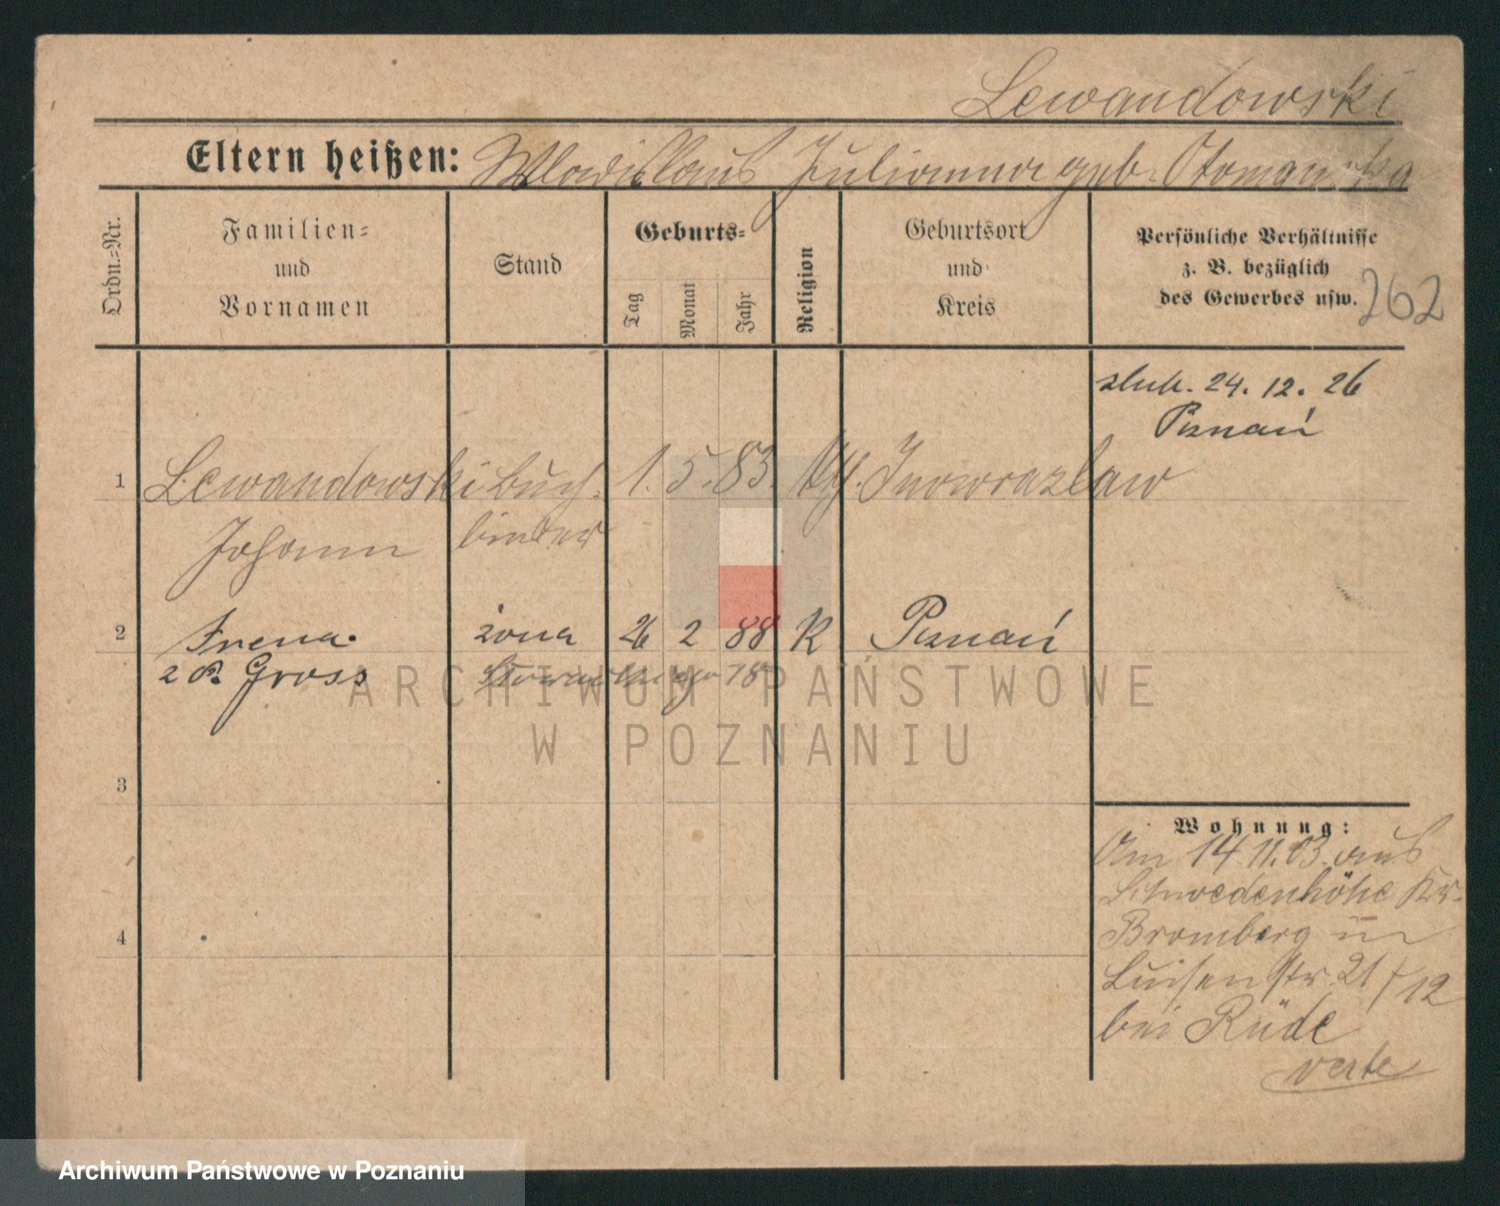 Lewandowski
Eltern heißen: Wladislaus Julianna geb. Otomanska
Ordn.-Nr.
Familien-
und
Vornamen
Stand
Geburts-
Tag
Monat
Jahr
Religion
Geburtsort
und
Kreis
Persönliche Verhältnisse
z. B. bezüglich
des Gewerbes usw.
262
ślub. 24. 12. 26
Poznań
1 Lewandowski Buch. 1. 5. 83. Kth. Inowrazlaw
Johann binder
2 Irena. żona 26 2 88 K Poznań
2 P. Gross
3
4
Wohnung:
Am 14.11.03. aus
Schwedenhöhe Kr.
Bromberg in
Luisenstr 21 / 12
bei Rüde
verte
ARCHIWUM PAŃSTWOWE
W POZNANIU
Archiwum Państwowe w Poznaniu